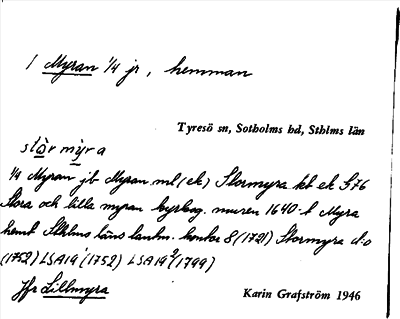 1 Myran 1/4 jr, hemman
Tyresö sn, Sotholms hd, Sthlms län
stòr mỳra
1/4 Myran jb Myran ml (ek) Stormyra kt ek S76
Stora och lilla myran kyrkog. muren 1640-t Myra
hemt Sthlms läns lantm. kontor 8 (1721) Stormyra d:o
(1752) LSA 19¹ (1752) LSA 19² (1799)
Jfr Lillmyra
Karin Grafström 1946